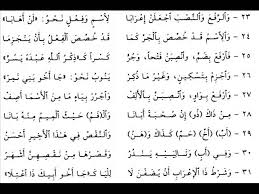 ٢٣ - وَالرَّفْعَ وَالنَّصْبَ اجْعَلَنْ إِعْرَابَا لِاسْمٍ وَفِعْلٍ نَحْوُ: «لَنْ أَهَابَا»
٢٤ - وَالِاسْمُ قَدْ خُصِّصَ بِالْجَرِّ كَمَا قَدْ خُصِّصَ الْفِعْلُ بِأَنْ يَنْجَزِمَا
٢٥ - فَارْفَعْ بِضَمٍّ، وَانْصِبَنْ فَتْحًا، وَجُرْ كَسْرًا كَـ«ذِكْرُ اللَّهِ عَبْدَهُ يَسُرْ»
٢٦ - وَاجْزِمْ بِتَسْكِينٍ، وَغَيْرُ مَا ذُكِرْ يَنُوبُ نَحْوُ: «جَا أَخُو بَنِي نَمِرْ»
٢٧ - وَارْفَعْ بِوَاوٍ، وَانْصِبَنَّ بِالْأَلِفْ وَاجْرُرْ بِيَاءٍ مَا مِنَ الْأَسْمَا أَصِفْ
٢٨ - مِنْ ذَاكَ (ذُو) إِنْ صُحْبَةً أَبَانَا وَ(الْفَمُ) حَيْثُ الْمِيمُ مِنْهُ بَانَا
٢٩ - (أَبٌ) (أَخٌ) (حَمٌ) كَذَاكَ وَ(هَنُ) وَالنَّقْصُ فِي هَذَا الْأَخِيرِ أَحْسَنُ
٣٠ - وَفِي (أَبٍ) وَتَالِيَيْهِ يَنْدُرُ وَقَصْرُهَا مِنْ نَقْصِهِنَّ أَشْهَرُ
٣١ - وَشَرْطُ ذَا الْإِعْرَابِ أَنْ يُضَفْنَ لَا لِلْيَا كَـ«جَا أَخُو أَبِيكَ ذَا اعْتِلَا»